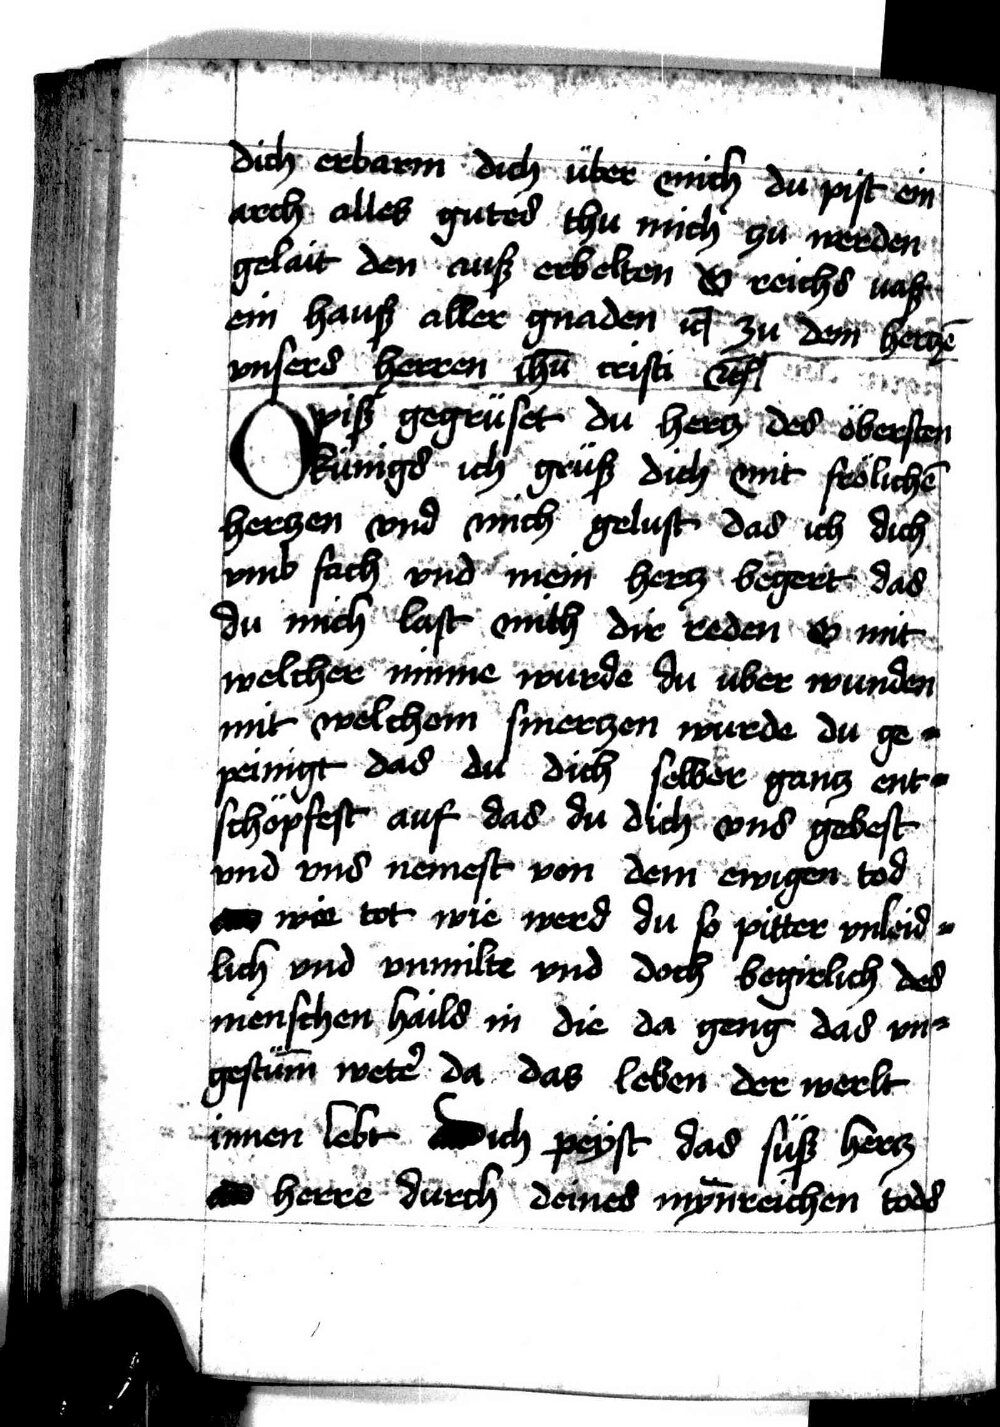 dich erbarm dich über mich du pist ein
arch alles gutes thu mich zu werden
gelait den auß erbelten O reichs vaß
ein hauß aller gnaden zu dem hertzē
vnsers herren ihū cristi
O piß gegrüset du hertz des öbersten
künigs ich grüß dich mit frölichē
hertzen vnd mich gelust das ich dich
vmb fach vnd mein hertz begert das
du mich last mith dir reden O mit
welcher minne wurde du uber wunden
mit welchem smertzen wurde du ge-
peinigt das du dich selber gantz ent-
schöpfest auf das du dich vns gebest
vnd vns nemest von dem ewigen tod
wie tot wie werd du so pitter vnleid-
lich vnd vnmilte vnd doch begirlich des
menschen hails in die da geng das vn-
gestüm̄ wete da das leben der werlt
innen lebt ich peyst das süß hertz
herre durch deines myn̄reichen tods